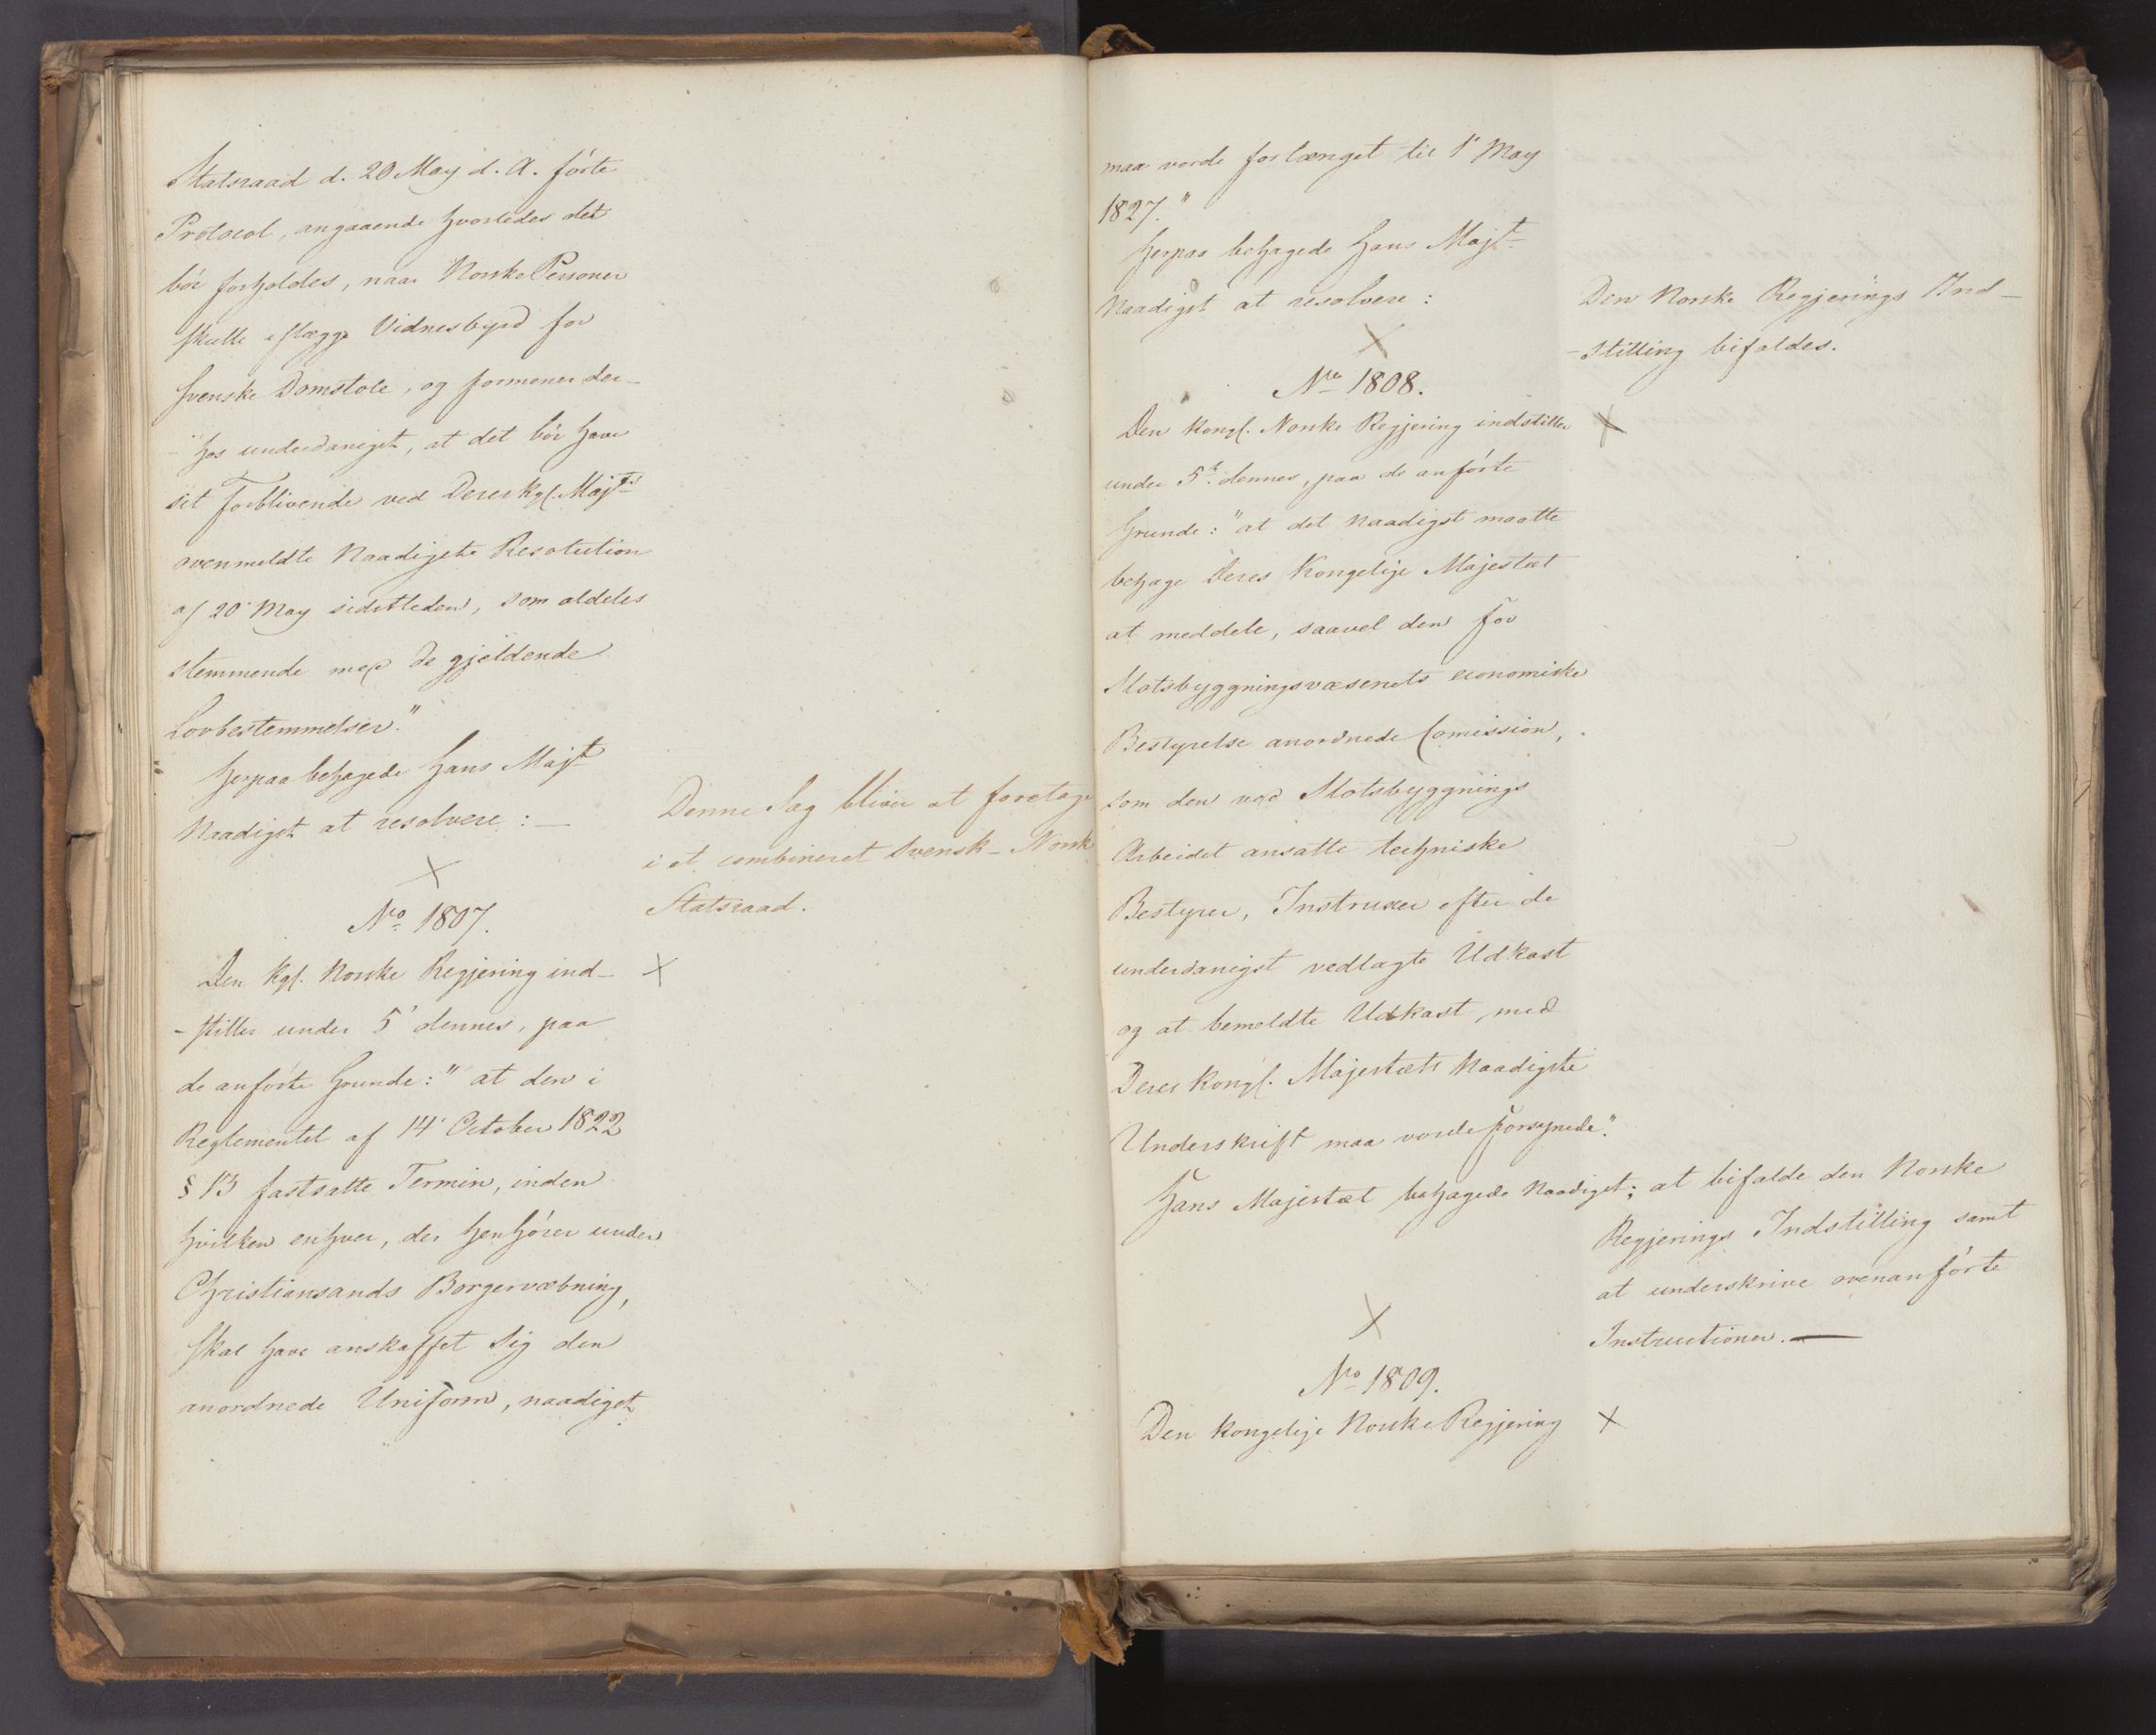 Statsraad d. 20 May d. A. förte
Protocol, angaaende hvorledes det
bör forholdes, naar Norske Personer
skulle aflægge Vidnesbyrd for
Svenske Domstole, og formener der-
-hos underdanigst, at det bör have
sit Forblivende ved Deres Kgl. Majts
ovenmeldte Naadigste Resolution
af 20 May sidstleden, som aldeles
stemmende med de gjeldende
Lovbestemmelser."
Herpaa behagede Hans Majt
Naadigst at resolvere:—
Denne Sag bliver at foretage
i et combineret Svensk-Norsk
Statsraad.
No 1807.
Den Kgl. Norske Regjering ind-
-stiller under 5' dennes, paa
de anförte Grunde: "at den i
Reglementet af 14' October 1822
§ 13 fastsatte Termin, inden
hvilken enhver, der henhörer under
Christiansands Borgervæbning,
skal have anskaffet sig den
anordnede Uniform, naadigst
maa vorde forlænget til 1' May
1827."
Herpaa behagede Hans Majt
Naadigst at resolvere:
Den Norske Regjerings Ind-
-stilling bifaldes.
No 1808.
Den Kongl. Norske Regjering indstiller
under 5t dennes, paa de anförte
Grunde: "at det Naadigst maatte
behage Deres Kongelige Majestæt
at meddele, saavel den for
Slotsbyggningsvæsenets economiske
Bestyrelse anordnede Comission,
som den ved Slotsbyggnings
Arbeidet ansatte techniske
Bestyrer, Instruxer efter de
underdanigst vedlagte Udkast
og at bemeldte Udkast, med
Deres Kongl. Majestæts Naadigste
Underskrift maa vorde forsynede."
Hans Majestæt behagede Naadigst; at bifalde den Norske
Regjerings Indstilling samt
at underskrive ovenanförte
Instructioner.—
No 1809.
Den Kongelige Norske Regjering